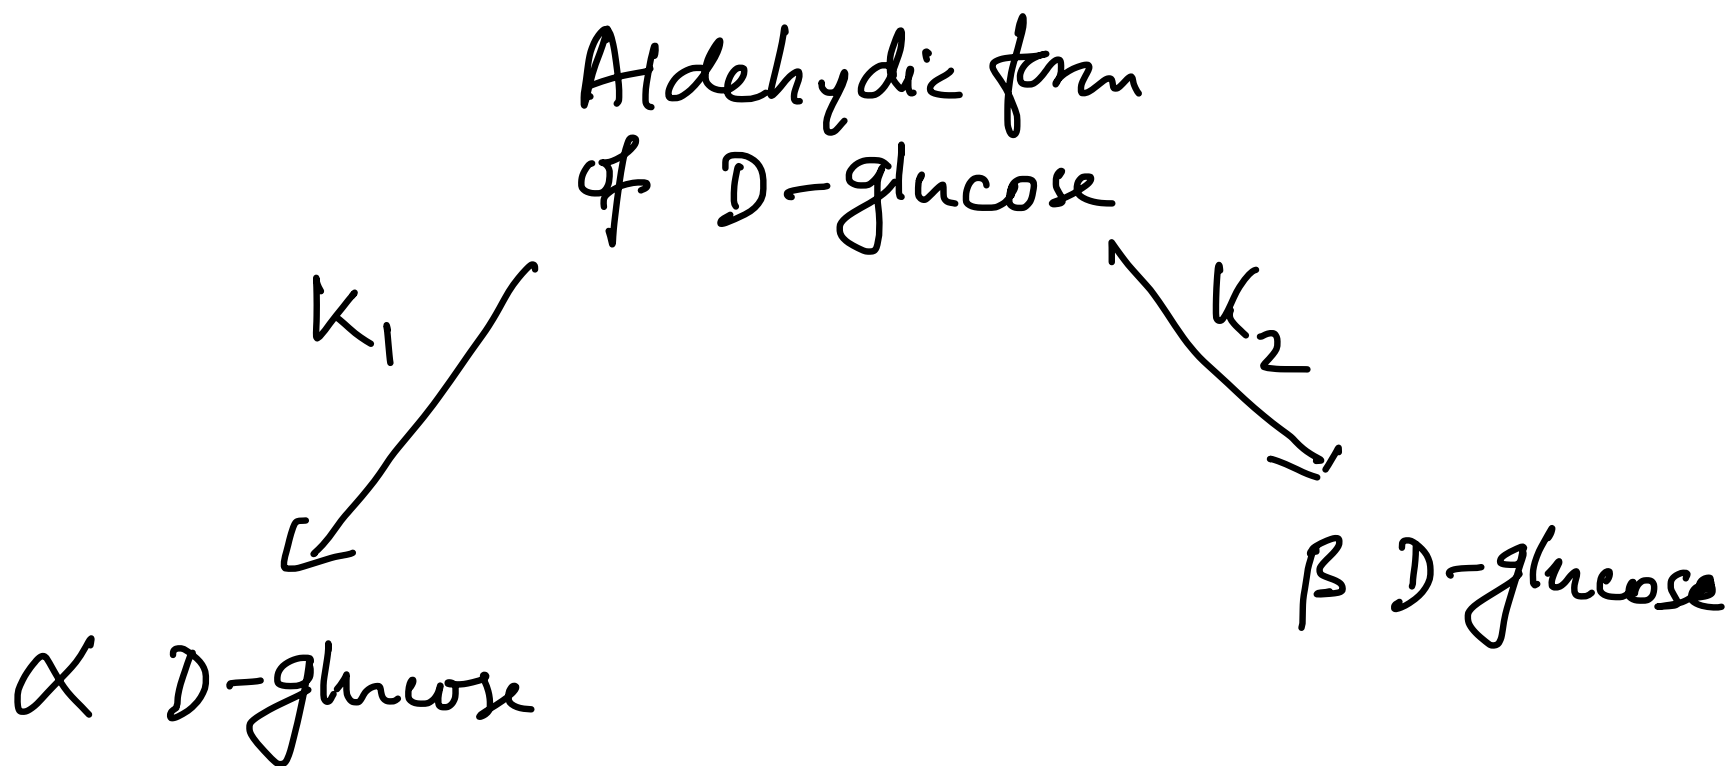 Aldehydic form
of D-glucose
K1
K2
β D-glucose
α D-glucose